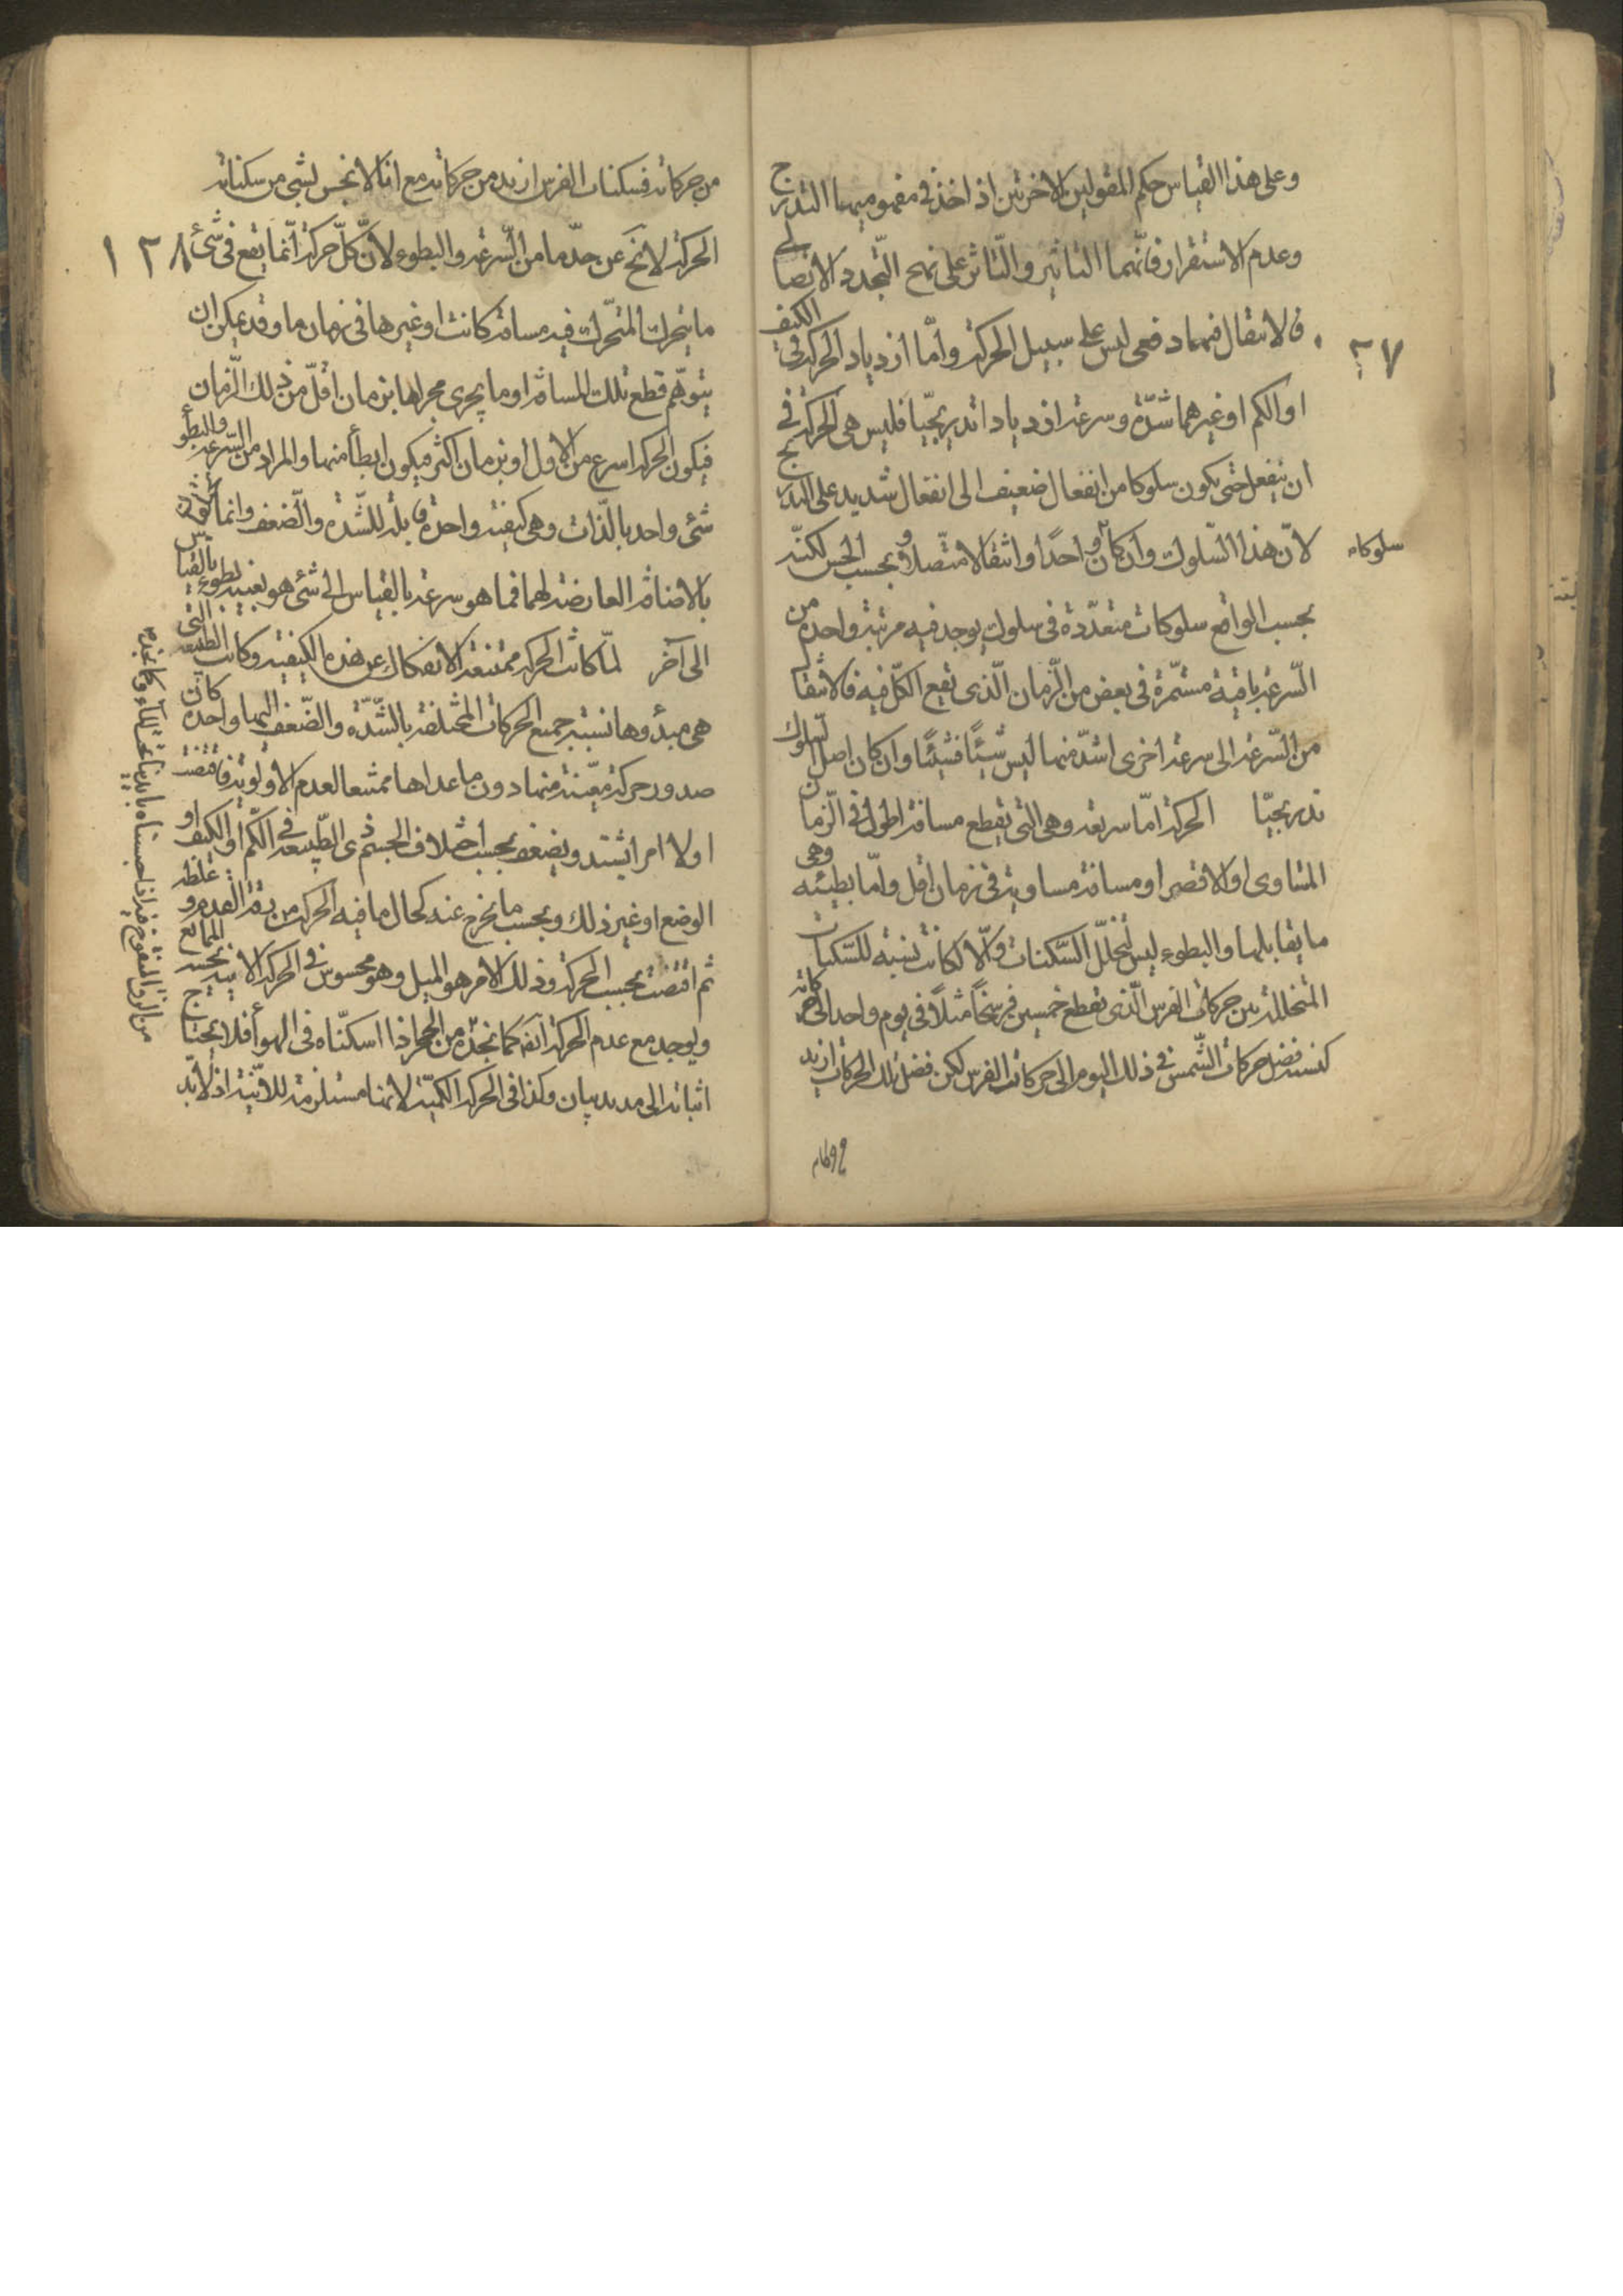 وعلى هذا القياس حكم المقولتين الاخرتين اذ اخذ فى مفهوميهما التدرج
وعدم الاستقرار فانهما التاثير والتاثر على نهج التجدد الاتصالى
فالانتقال فيهما دفعى ليس على سبيل الحركة واما ازدياد الحركة فى الكيف
٢٧
او الكم او غيرهما شدة وسرعة ازديادا تدريجيا فليس هى الحركة فى
ان ينفعل حتى يكون سلوكا من انفعال ضعيف الى انفعال شديد على التدريج
لان هذا السلوك وان كان واحدا وانتقالا متصلا بحسب الحس لكنه
سلوكاه
بحسب الواقع سلوكات متعددة فى سلوك يوجد فيه مرتبة واحدة من
السرعة باقية مستمرة فى بعض من الزمان الذى يقع الكل فيه فالانتقال
من السرعة الى سرعة اخرى اشد منها ليس شيئا فشيئا وان كان اصل السلوك
تدريجيا الحركة اما سريعة وهى التى تقطع مسافة اطول فى الزمان
المتساوى او الاقصر او مسافة مساوية فى زمان اقل واما بطيئة وهى
ما يقابلها والبطوء ليس لتخلل السكنات والا لكانت نسبة السكنات
المتخللة بين حركات الفرس الذى تقطع خمسين فرسخا مثلا فى يوم واحد الى حركاته
كنسبة فضل حركات الشمس فى ذلك اليوم الى حركات الفرس لكن فضل تلك الحركات ازيد
من حركاته فسكنات الفرس ازيد من حركاته مع انا لا نحس بشئ من سكناته
الحركة لا تخ عن حد ما من السرعة والبطوء لان كل حركة انما يقع فى شئ
١٢٨
ما يتحرك المتحرك فيه مسافة كانت او غيرها فى زمان ما وقد يمكن ان
يتوهم قطع تلك المسافة او ما يجرى مجراها بزمان اقل من ذلك الزمان
فيكون الحركة اسرع من الاول او بزمان اكثر فيكون ابطأ منها والمراد من السرعة والبطؤ
شئ واحد بالذات وهى كيفية واحدة قابلة للشدة والضعف وانما
بالاضافة العارضة لهما فما هو سرعة بالقياس الى شئ هو بعينه بطوء بالقياس
الى آخر لما كانت الحركة ممتنعة الانفكاك عن هذه الكيفية وكانت الطبيعة التى
هى مبدؤها نسبة جميع الحركات المختلفة بالشدة والضعف اليها واحدة كان
صدور حركة معينة منها دون ما عداها ممتنعا لعدم الاولوية فاقتضت
اولا امرا يشتد ويضعف بحسب اختلاف الجسم ذى الطبيعة فى الكم او الكيف او
الوضع او غير ذلك وبحسب ما يخرج عنه كحال ما فيه الحركة من رقة القوام وغلظه
ثم اقتضت بحسبه الحركة وذلك الامر هو الميل وهو محسوس فى الحركة الاينية
ويوجد مع عدم الحركة ايضه كما نجده من الحجر اذا اسكناه فى الهوأ فلا يحتاج
اثباته الى مديد بيان وكذا فى الحركة الكمية لانها مستلزمة للاينية اذ لا بد
من الزق المنفوخ فيه اذا حبسناه بايدينا تحت الماء